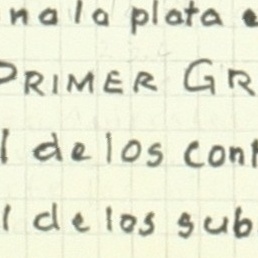 na la plata e
PRIMER GR
l de los con
l de los sub